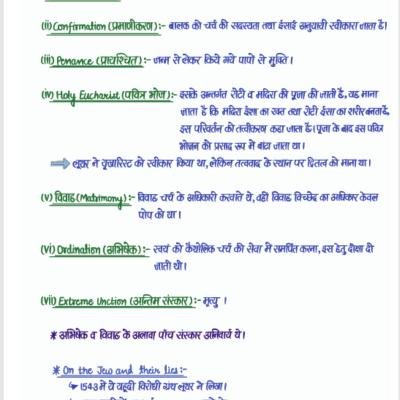 (ii) Confirmation (प्रमाणीकरण):- बालक को चर्च की सदस्यता तथा ईसाई अनुयायी स्वीकारा जाता है।
(iii) Penance (प्रायश्चित):- जन्म से लेकर किये गये पापों से मुक्ति।
(iv) Holy Eucharist (पवित्र भोज):- इसके अन्तर्गत रोटी व मदिरा की पूजा की जाती है, यह माना
जाता है कि मदिरा ईसा का रक्त तथा रोटी ईसा का शरीर बनता है,
इस परिवर्तन को तत्वीकरण कहा जाता है। पूजा के बाद इस पवित्र
भोजन को प्रसाद रूप में बांटा जाता था।
⇒ लूथर ने यूखारिस्ट को स्वीकार किया था, लेकिन तत्ववाद के स्थान पर द्वितत्व को माना था।
(v) विवाह (Matrimony):- विवाह चर्च के अधिकारी करवाते थे, वहीं विवाह विच्छेद का अधिकार केवल
पोप को था।
(vi) Ordination (अभिषेक):- स्वयं को कैथोलिक चर्च की सेवा में समर्पित करना, इस हेतु दीक्षा दी
जाती थी।
(vii) Extreme Unction (अन्तिम संस्कार):- मृत्यु ।
* अभिषेक व विवाह के अलावा पाँच संस्कार अनिवार्य थे।
* On the Jew and their lies:-
↳ 1543 में ये यहूदी विरोधी ग्रंथ लूथर ने लिखा।